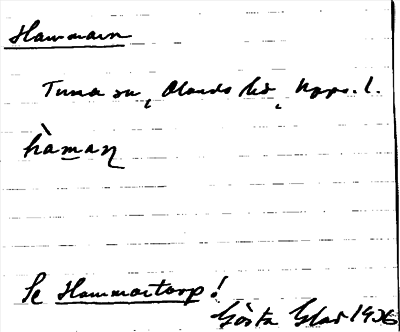 Hammarn
Tuna sn, Olands hd, Upps. l.
hàmaɳ
Se Hammartorp!
Gösta Glas 1936